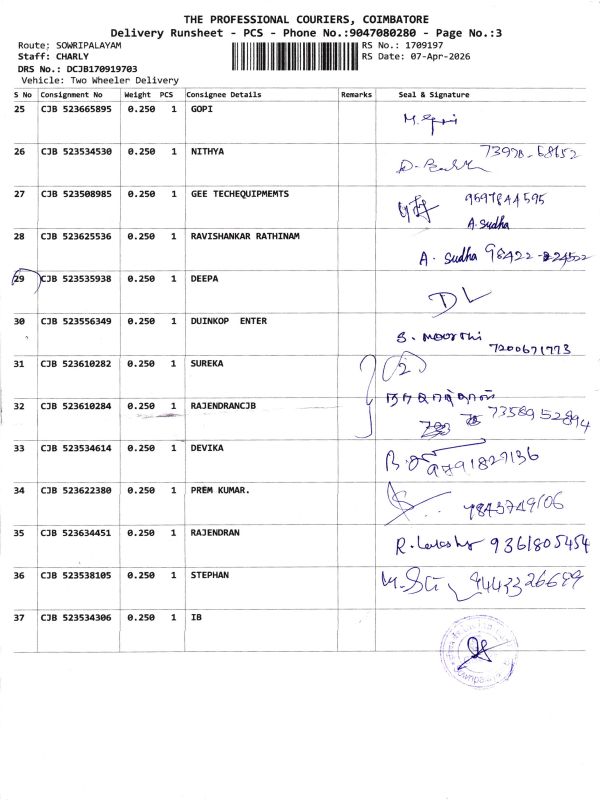 THE PROFESSIONAL COURIERS, COIMBATORE
Delivery Runsheet - PCS - Phone No.:9047080280 - Page No.:3
Route: SOWRIPALAYAM RS No.: 1709197
Staff: CHARLY RS Date: 07-Apr-2026
DRS No.: DCJB170919703
Vehicle: Two Wheeler Delivery
S No Consignment No Weight PCS Consignee Details Remarks Seal & Signature
25 CJB 523665895 0.250 1 GOPI
26 CJB 523534530 0.250 1 NITHYA
27 CJB 523508985 0.250 1 GEE TECHEQUIPMEMTS
A. Sudha
28 CJB 523625536 0.250 1 RAVISHANKAR RATHINAM A. Sudha
29 CJB 523535938 0.250 1 DEEPA
30 CJB 523556349 0.250 1 DUINKOP ENTER S. MOORTHI
7200671773
31 CJB 523610282 0.250 1 SUREKA (2)
32 CJB 523610284 0.250 1 RAJENDRANCJB 7358952894
33 CJB 523534614 0.250 1 DEVIKA 9791827136
34 CJB 523622380 0.250 1 PREM KUMAR. 9843749106
35 CJB 523634451 0.250 1 RAJENDRAN 9361805454
36 CJB 523538105 0.250 1 STEPHAN 9443326699
37 CJB 523534306 0.250 1 IB